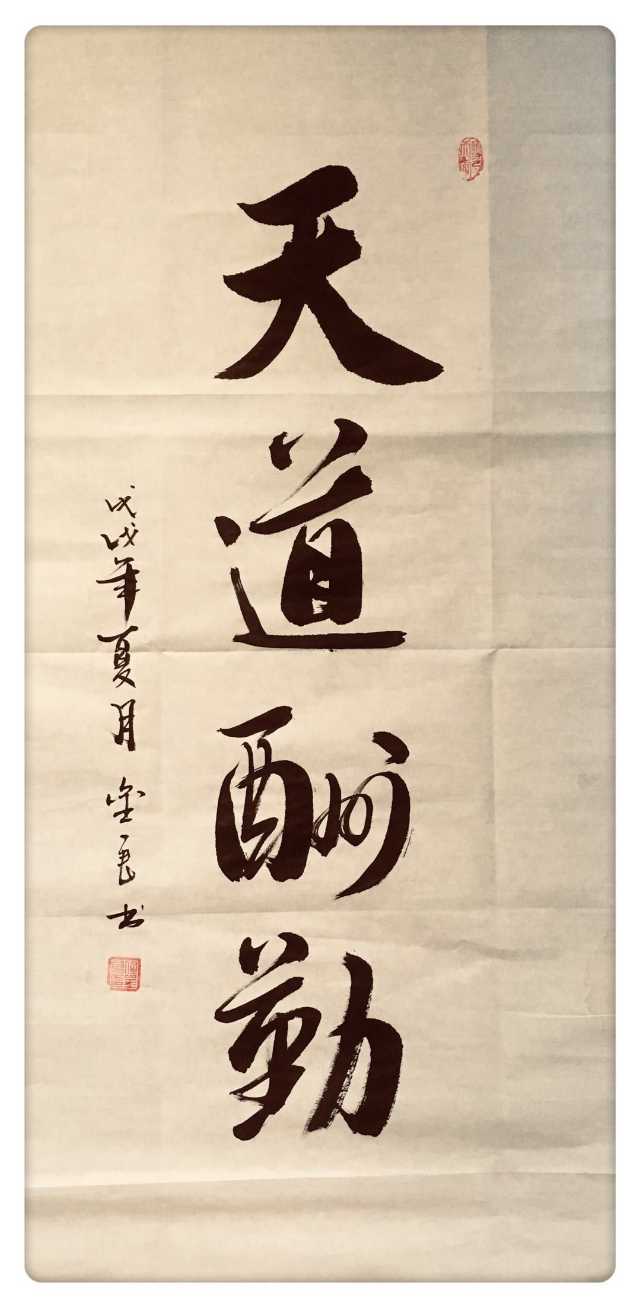 天道酬勤
戊戌年夏月 金良书